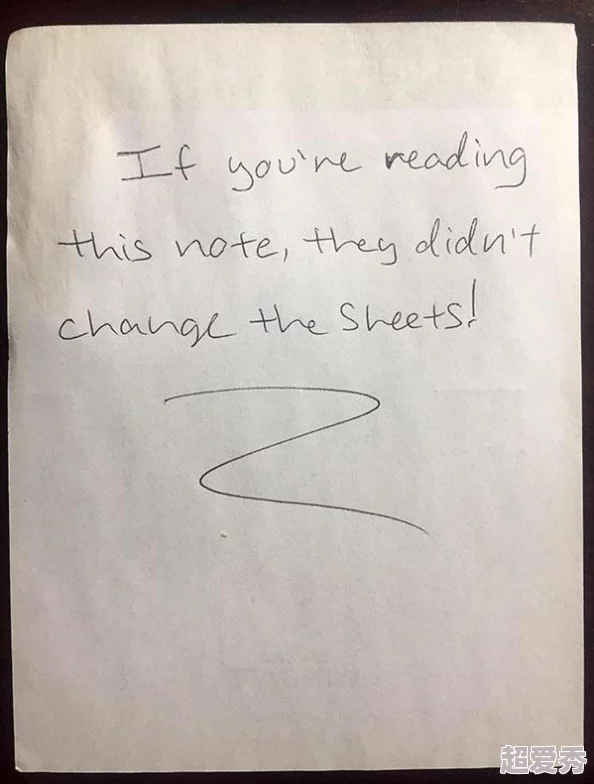 If you're reading
this note, they didn't
change the Sheets!
超爱秀